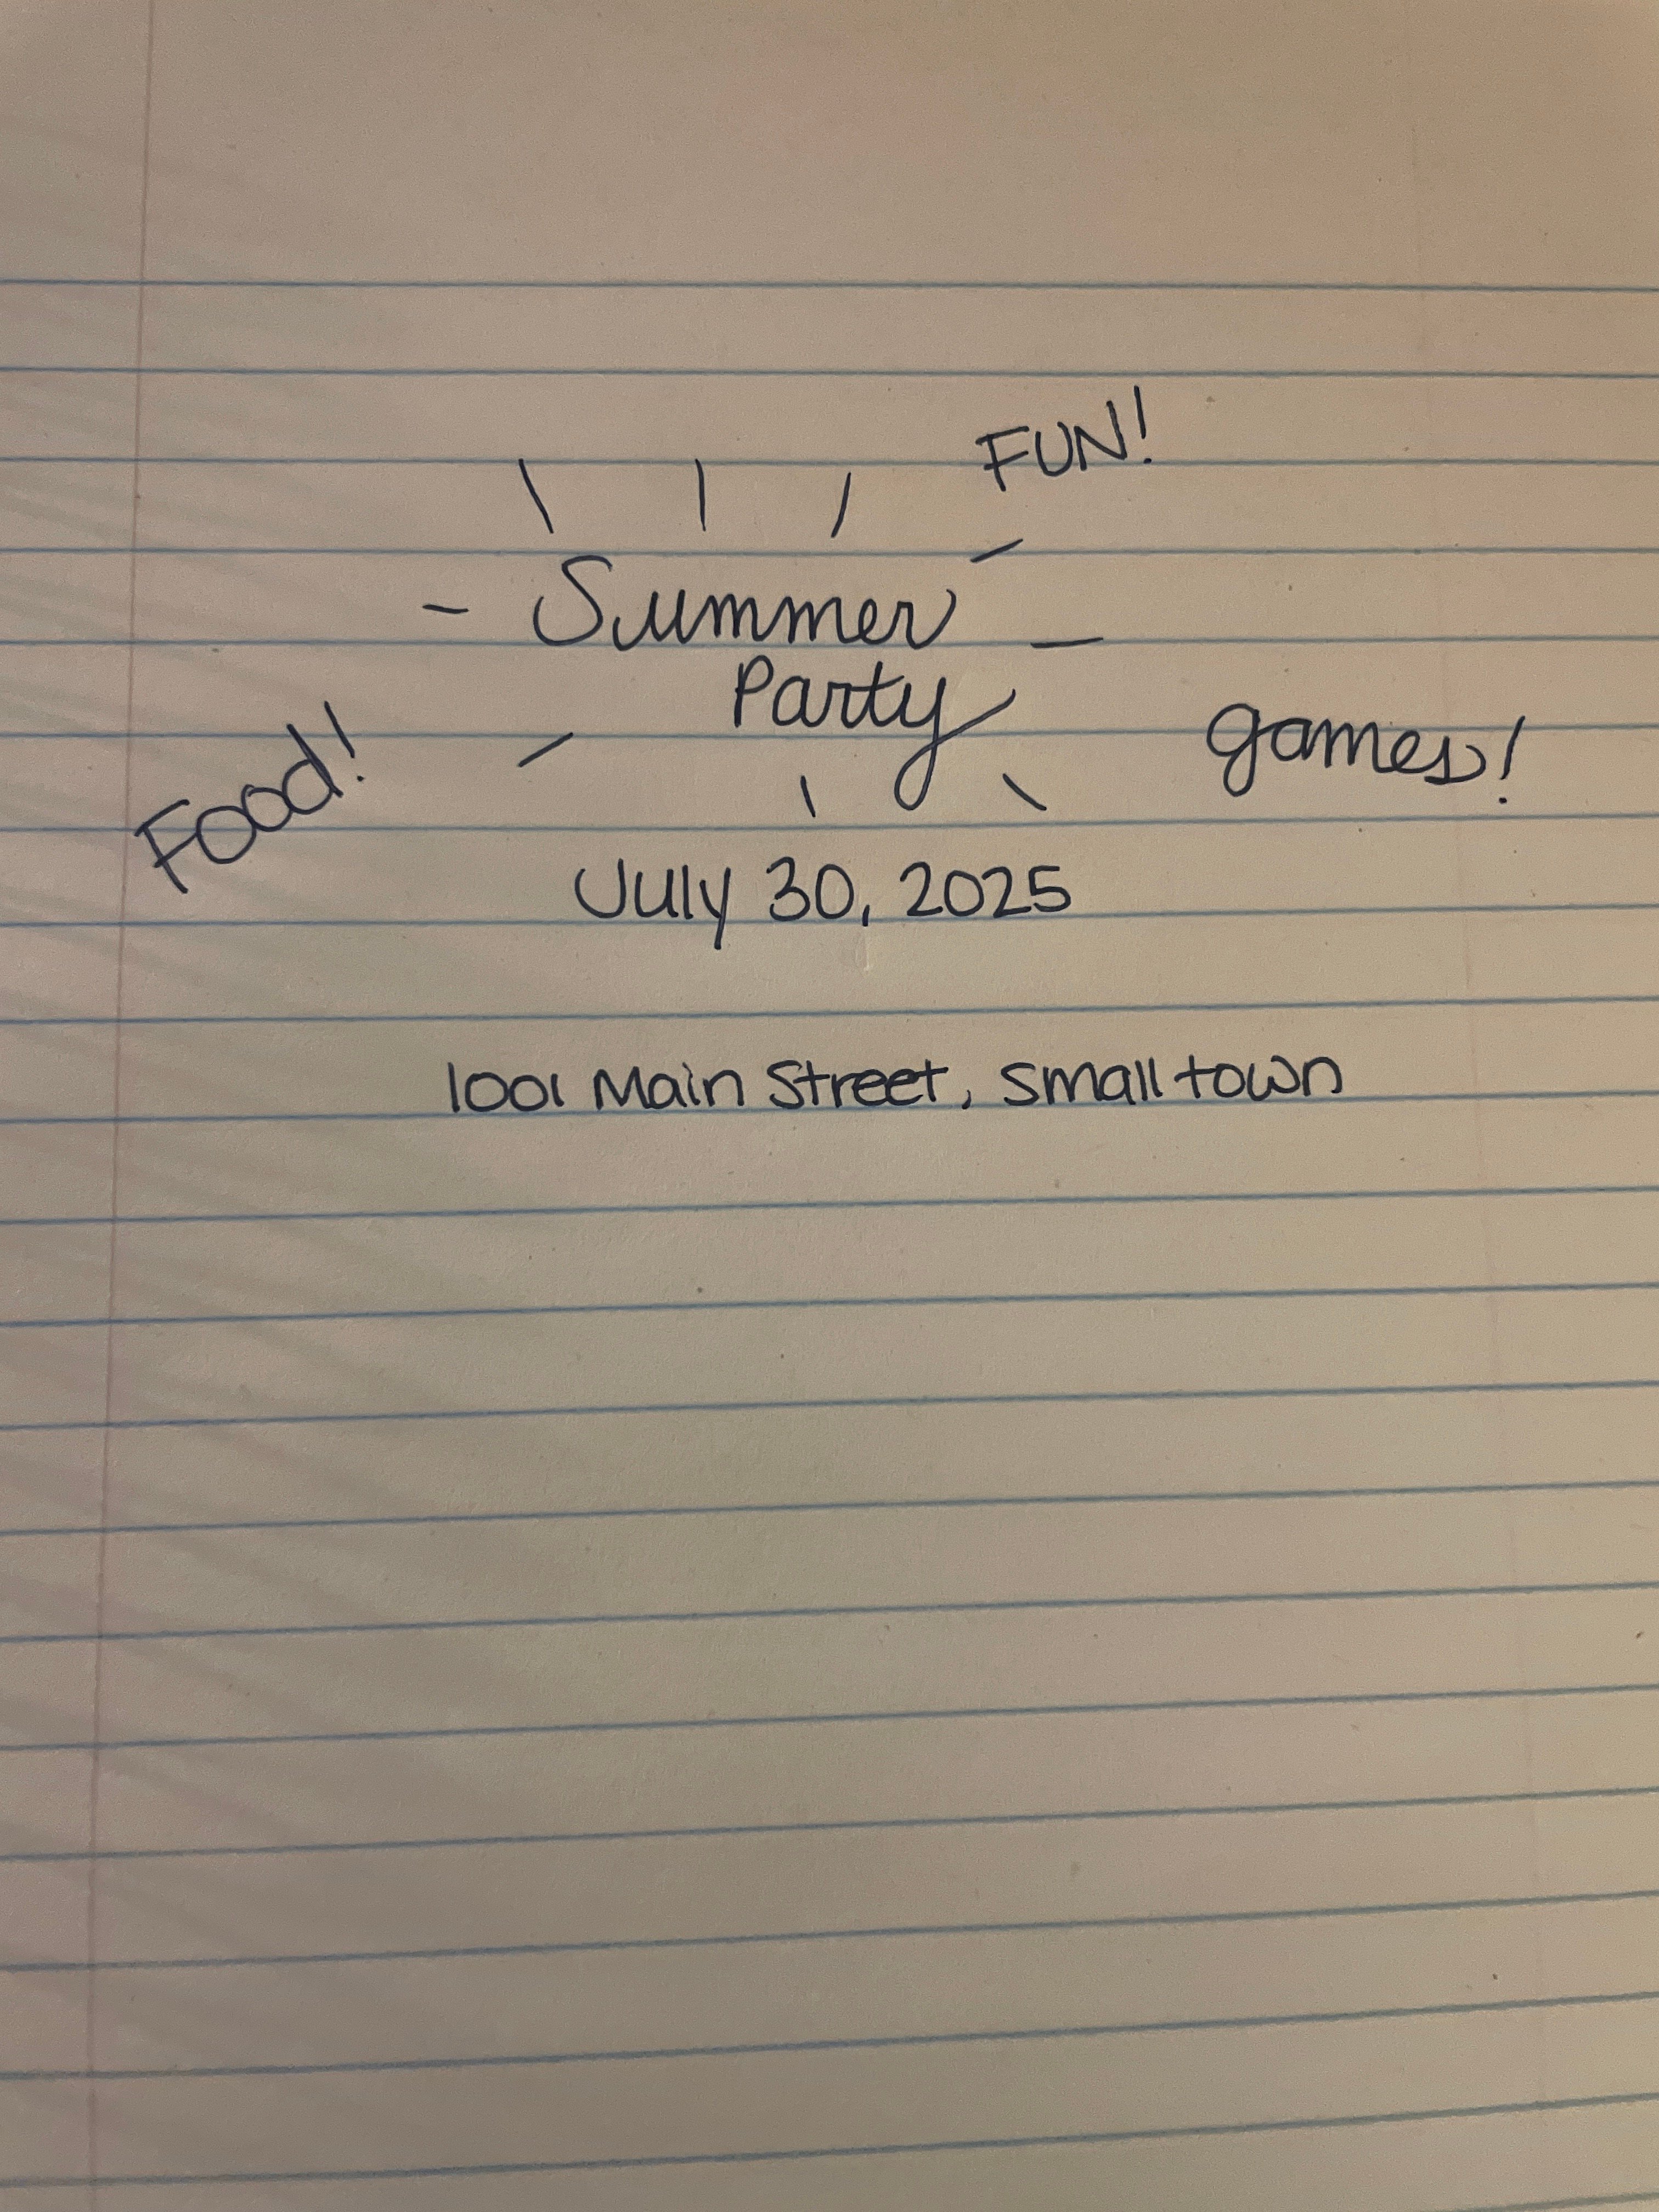 FUN!
Summer
Party
games!
Food!
July 30, 2025
1001 Main Street, Small town